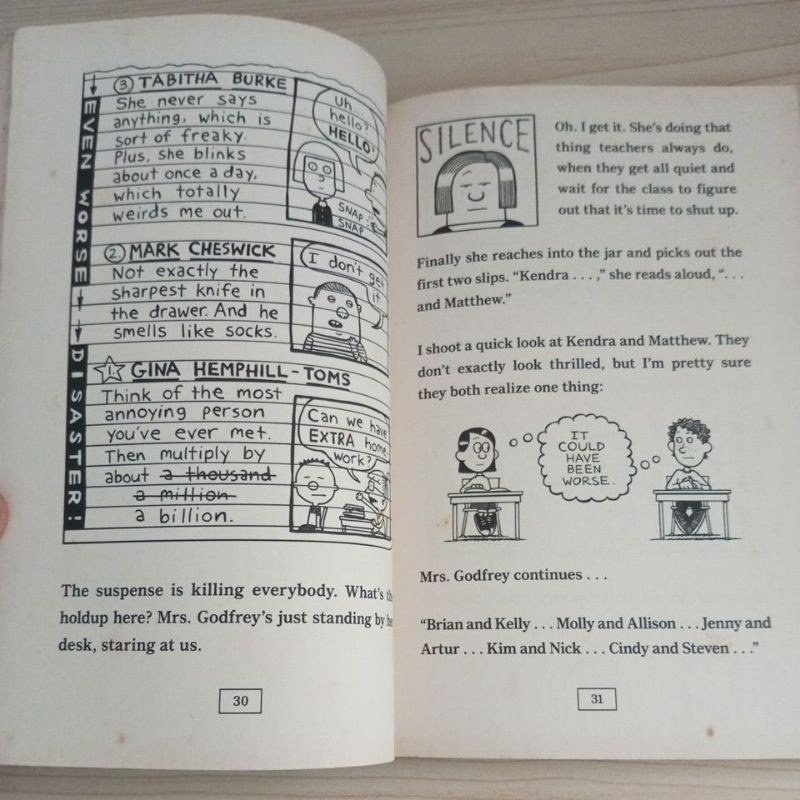 ③ TABITHA BURKE
She never says
anything, which is
sort of freaky.
Plus, she blinks
about once a day,
which totally
weirds me out.
Uh..
hello?
HELLO?
SNAP
SNAP
EVEN WORSE
② MARK CHESWICK
Not exactly the
sharpest knife in
the drawer. And he
smells like socks.
I don't get
it
DISASTER!
1. GINA HEMPHILL-TOMS
Think of the most
annoying person
you've ever met.
Then multiply by
about a thousand
a million
a billion.
Can we have
EXTRA home-
work?
The suspense is killing everybody. What's
holdup here? Mrs. Godfrey's just standing by
desk, staring at us.
30
SILENCE
Oh. I get it. She's doing that
thing teachers always do,
when they get all quiet and
wait for the class to figure
out that it's time to shut up.
Finally she reaches into the jar and picks out the
first two slips. “Kendra . . . ,” she reads aloud, “. . .
and Matthew.”
I shoot a quick look at Kendra and Matthew. They
don't exactly look thrilled, but I'm pretty sure
they both realize one thing:
IT
COULD
HAVE
BEEN
WORSE.
Mrs. Godfrey continues . . .
“Brian and Kelly . . . Molly and Allison . . . Jenny and
Artur . . . Kim and Nick . . . Cindy and Steven . . .”
31